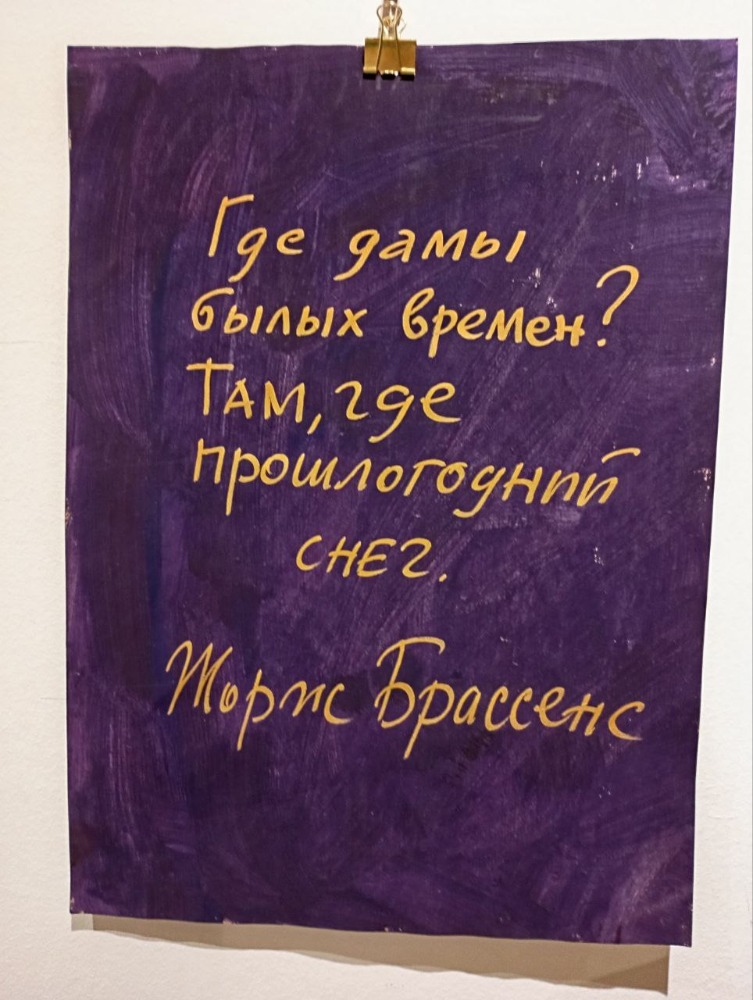 Где дамы
былых времен?
Там, где
прошлогодний
снег.
Жорж Брассенс